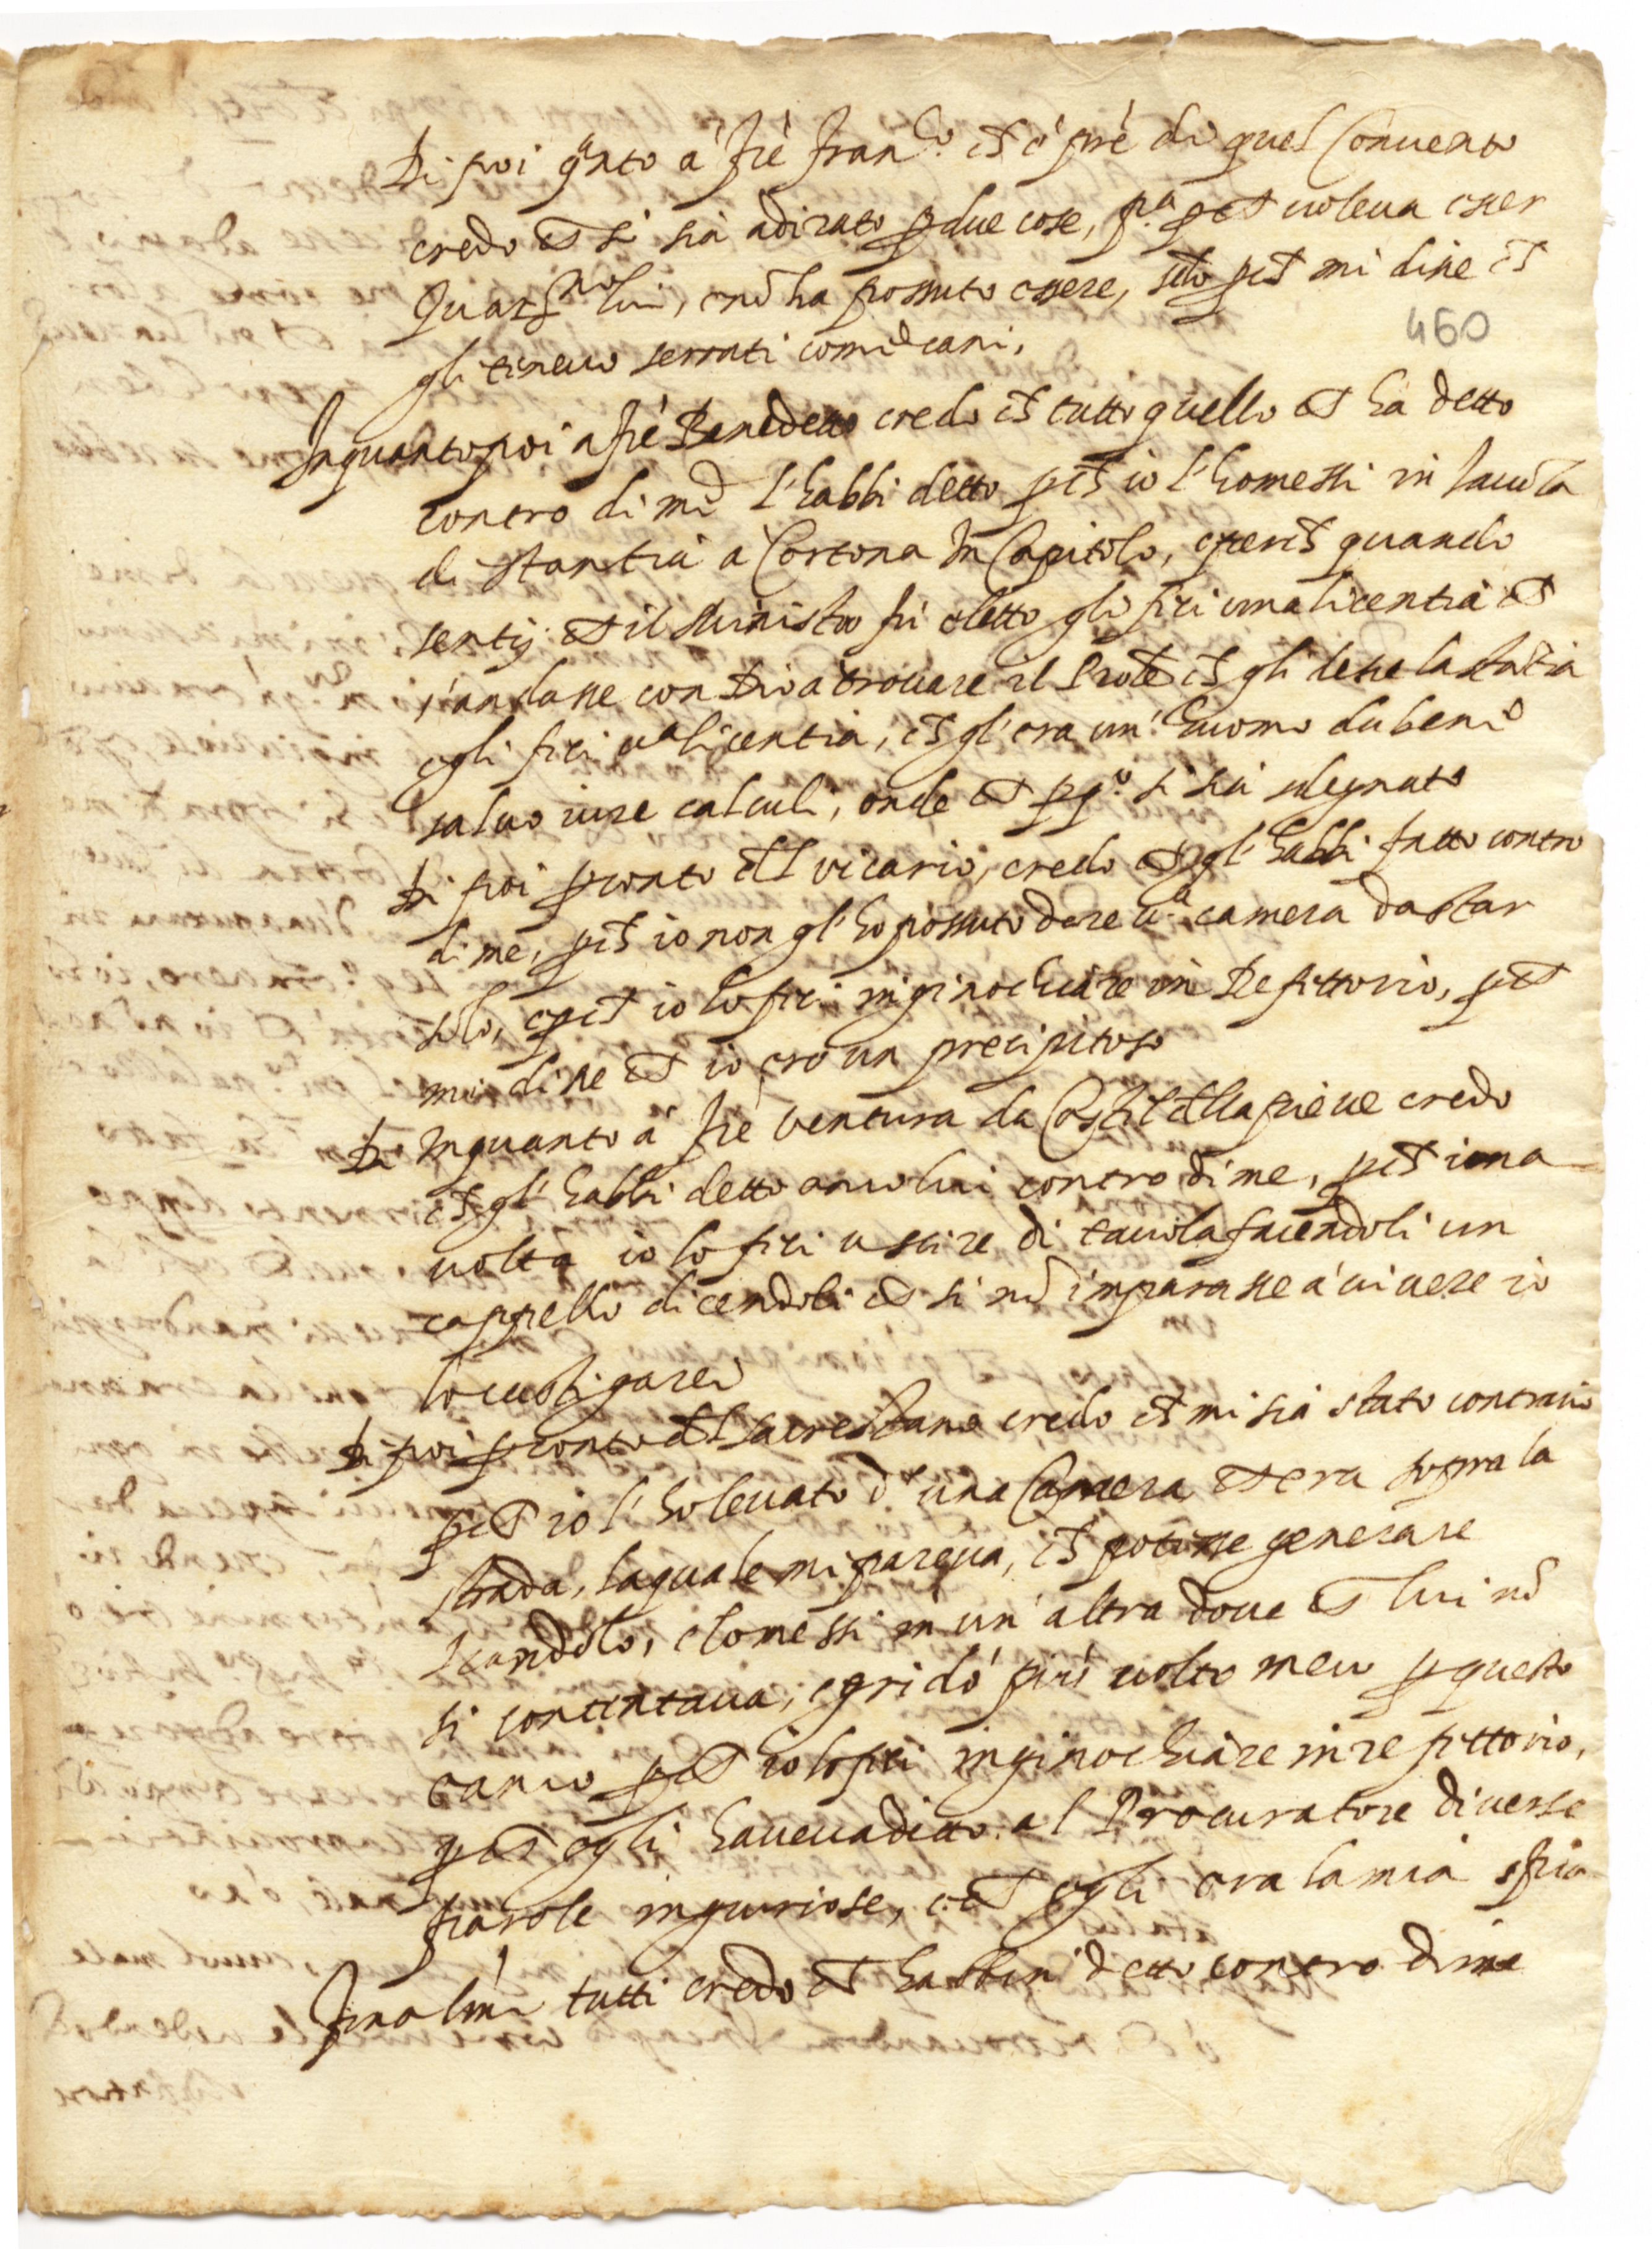 Di poi qnto a frè Fran.co ch è prè di quel Convento
credo ch si sia adirato p due cose, p.a pch voleva esser
Guar.no lui, e nō ha possuto essere, pch mi disse ch
gli tenevo serrati come cani,
460
Inquanto poi a frè Benedetto credo ch tutto quello ch ha detto
contro di me l'habbi detto pch io l'ho messi in
di stantia a Cortona in Capitolo, e perch quando
sentij ch il Ministro fu eletto gli feci una licentia ch
s'andasse con Dio a trovare il ch gli desse la stātia
e gli feci u.a licentia, ch gl'era un' huomo da bene
salvo iure calculi, onde ch p q.o si sia sdegnato
Di poi p conto dl vicario, credo ch gl'habbi fatto contro
di me, pch io non gl'ho possuto dare u.a camera da star
solo, e pch io lo feci inginochiare in Refittorio, pch
mi disse ch io ero un precipitoso
Di Inquanto a frè Ventura da Castel dlla pieve credo
ch gl'habbi detto anco lui contro di me, pch una
volta io lo feci uscire di tavola facendoli un
cappello dicendoli ch si nō imparasse a vivere io
lo castigarei
Di poi p conto dl Sacrestano credo ch mi sia stato contrario
pch io l'ho levato d' una Camera ch era sopra la
strada, laquale mi pareva, ch potesse generare
scandolo, e lo messi in un' altra dove ch lui nō
si contentava, e gridò più volte meco p questo
e anco pch io lo feci inginochiare in refittorio,
pch egli haveva detto al Procuratore diverse
parole ingiuriose, e ch egli era la mia spia
Finalmē tutti credo ch habbin detto contro di me